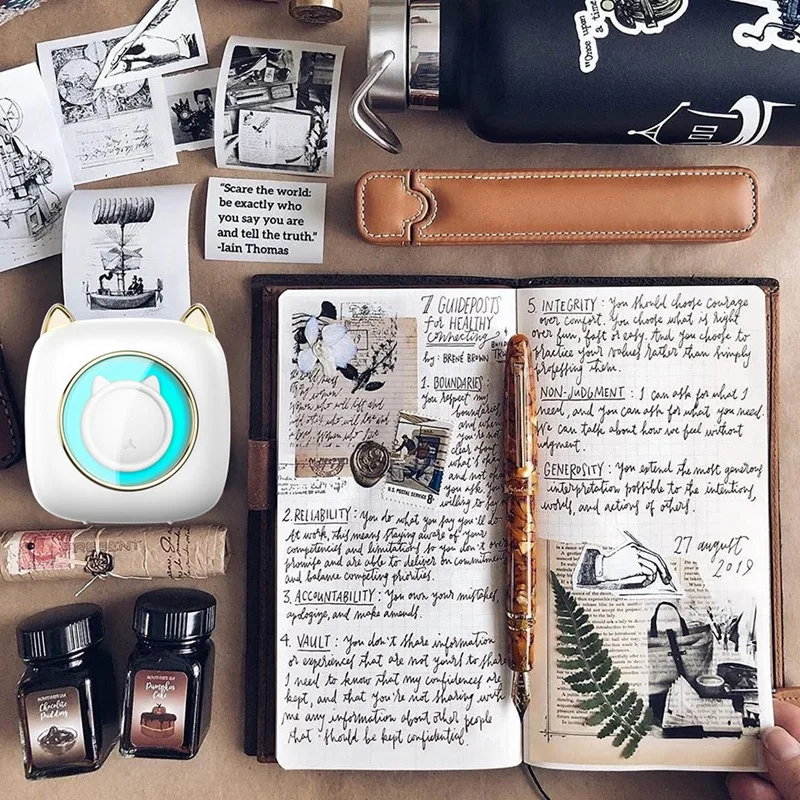 "Once upon
a time"
"Scare the world:
be exactly who
you say you are
and tell the truth."
-Iain Thomas
7 GUIDEPOSTS
for HEALTHY
connecting
by: BRENÉ BROWN
1. BOUNDARIES:
You respect my
boundaries,
and when
you're not
clear about
what's
and not
you ask
willing to say
U.S. POSTAGE 8c
2. RELIABILITY: You do what you say you'll do.
At work, this means staying aware of your
competencies and limitations so you don't over
promise and are able to deliver on commitments
and balance competing priorities.
3. ACCOUNTABILITY: You own your mistakes,
apologize, and make amends.
4. VAULT: You don't share information
or experiences that are not yours to share.
I need to know that my confidences are
kept, and that you're not sharing with
me any information about other people
that should be kept confidential.
5. INTEGRITY: You should choose courage
over comfort. You choose what is right
over fun, fast or easy. And you choose to
practice your values rather than simply
professing them.
NON-JUDGMENT: I can ask for what I
need, and you can ask for what you need.
We can talk about how we feel without
judgment.
GENEROSITY: You extend the most generous
interpretation possible to the intentions,
words, and actions of others.
27 august
2019
Chocolate
Pudding
Pumpkin
Cake